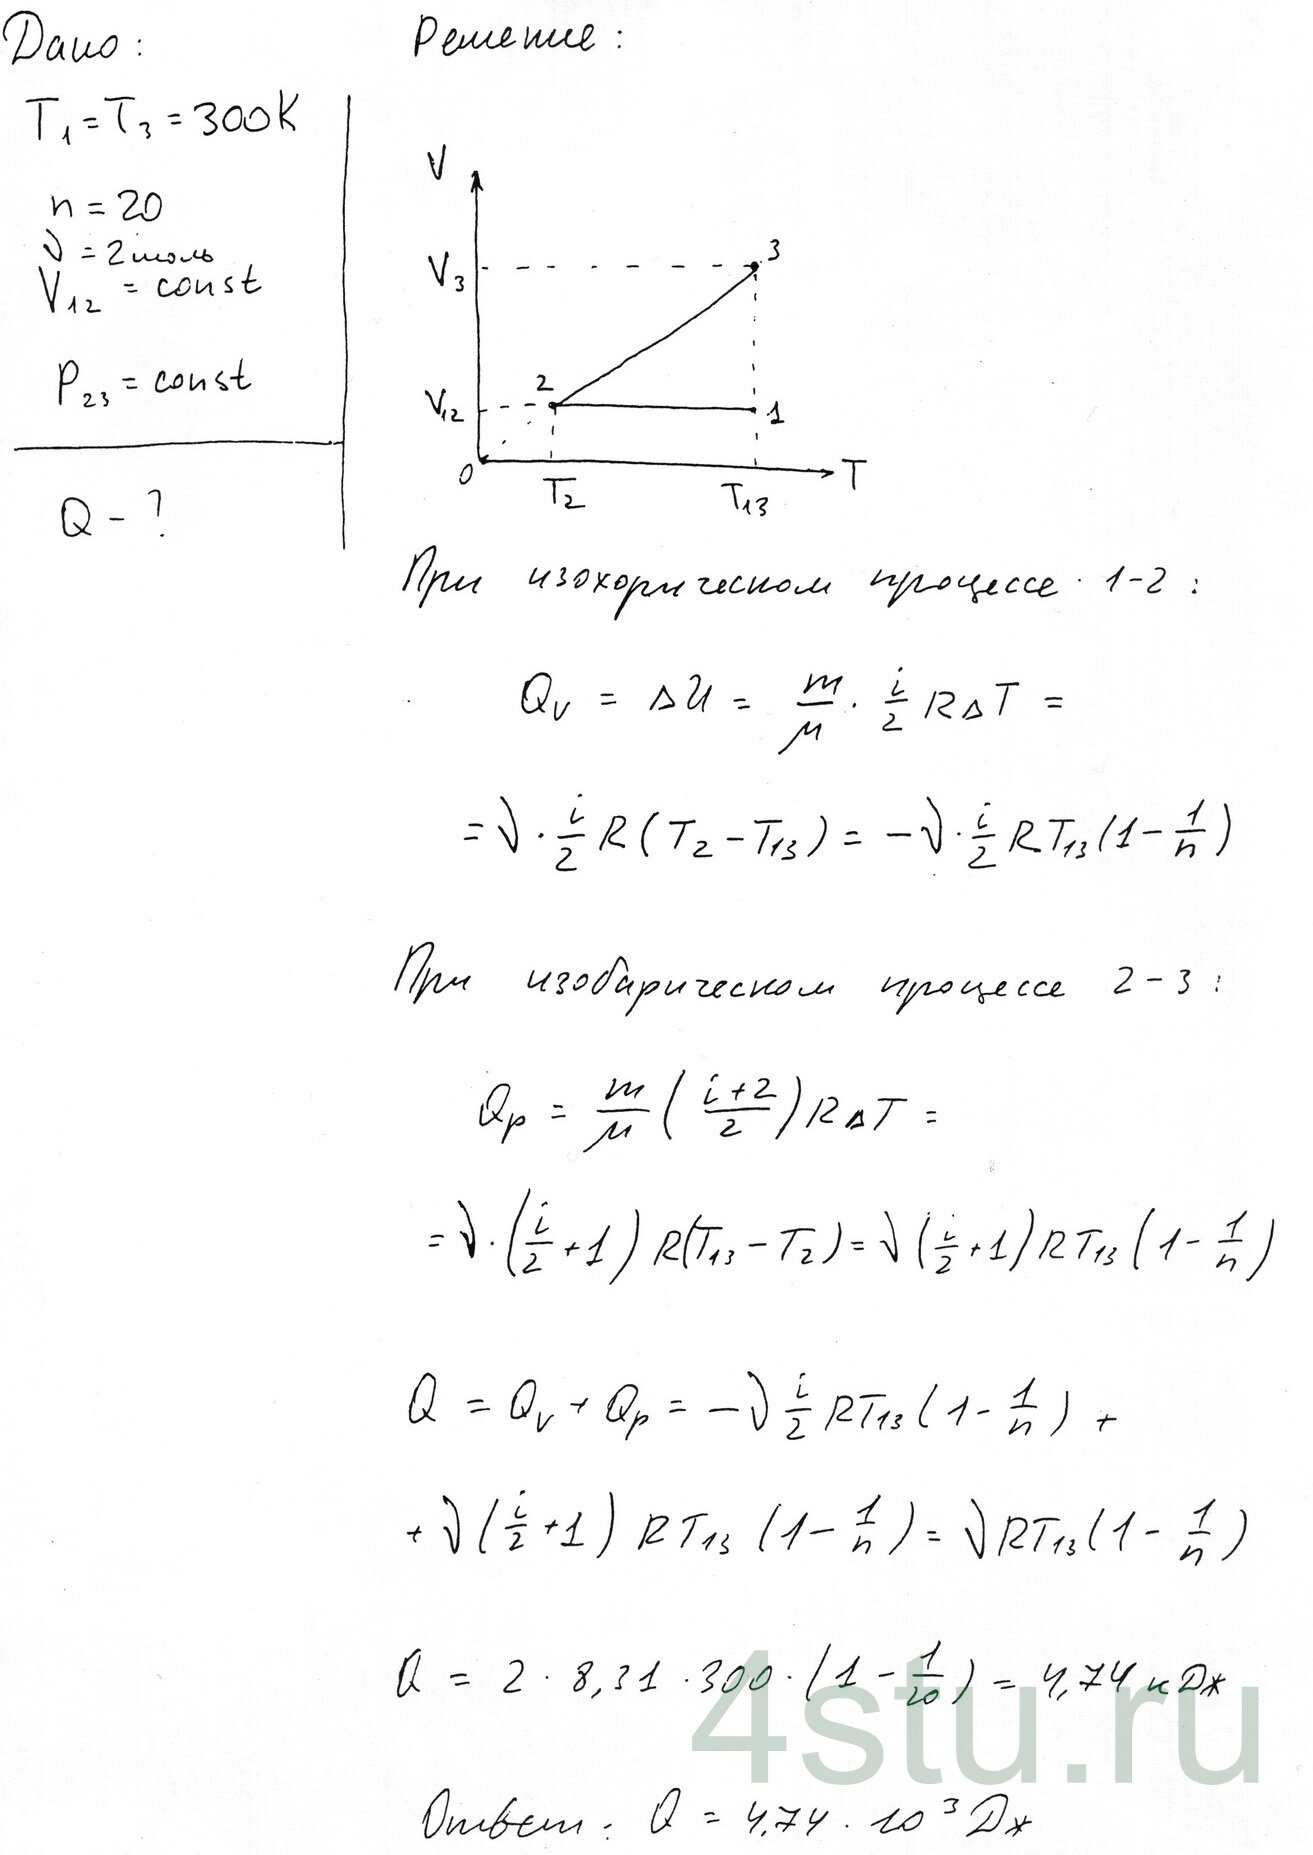 Дано:
T₁ = T₃ = 300K
n = 20
ν = 2 моль
V₁₂ = const
P₂₃ = const
Q - ?
Решение:
V
V₃
3
2
V₁₂
1
0
T₂
T₁₃
T
При изохорическом процессе 1-2:
Qᵥ = ΔU = m/μ · i/2 RΔT =
= ν · i/2 R(T₂ - T₁₃) = -ν · i/2 RT₁₃(1 - 1/n)
При изобарическом процессе 2-3:
Qₚ = m/μ ((i+2)/2) RΔT =
= ν · (i/2 + 1) R(T₁₃ - T₂) = ν (i/2 + 1) RT₁₃ (1 - 1/n)
Q = Qᵥ + Qₚ = -ν i/2 RT₁₃ (1 - 1/n) +
+ ν (i/2 + 1) RT₁₃ (1 - 1/n) = ν RT₁₃ (1 - 1/n)
Q = 2 · 8,31 · 300 · (1 - 1/20) = 4,74 кДж
4stu.ru
Ответ: Q = 4,74 · 10³ Дж